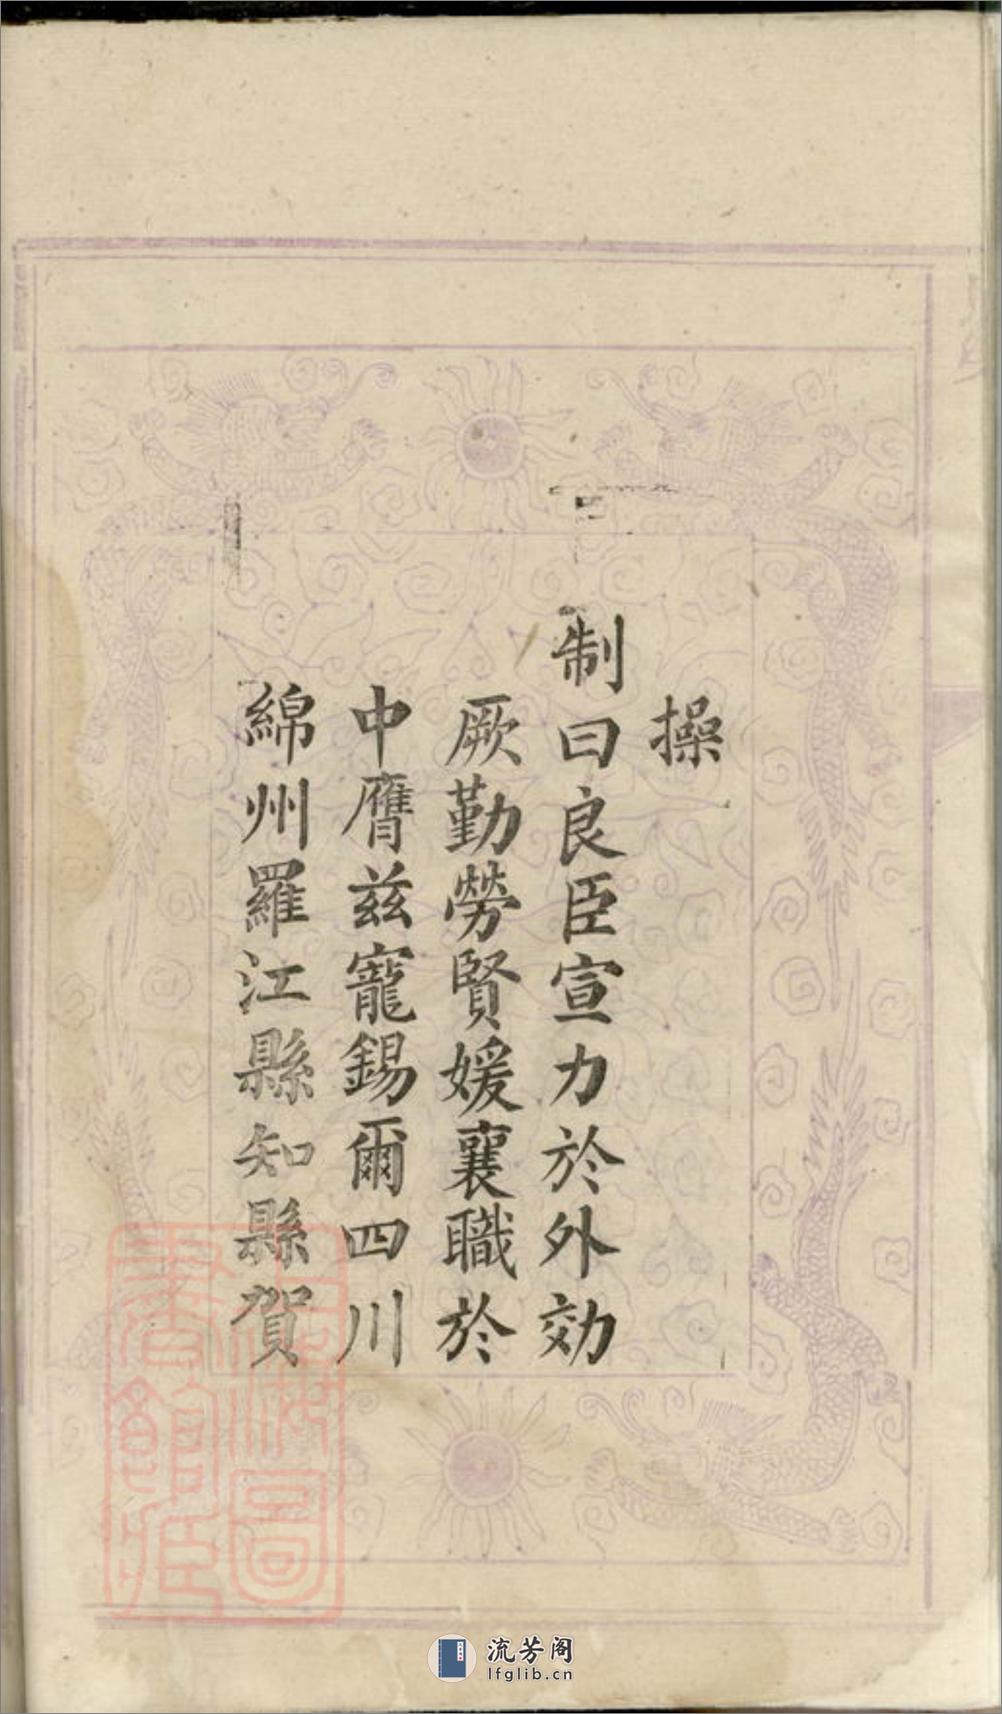 操
制曰良臣宣力於外効
厥勤勞賢媛襄職於
中膺兹寵錫爾四川
綿州羅江縣知縣賀
流芳阁
lfglib.cn